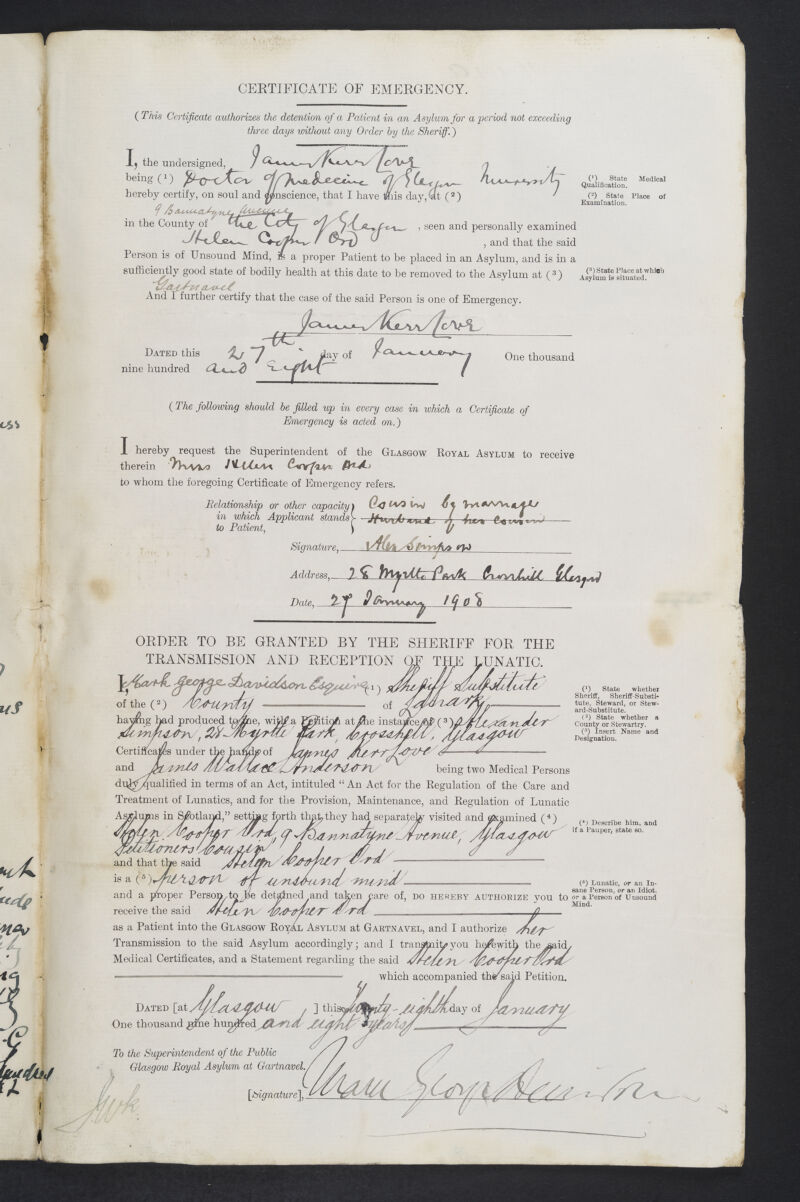 CERTIFICATE OF EMERGENCY.
(This Certificate authorizes the detention of a Patient in an Asylum for a period not exceeding
three days without any Order by the Sheriff.)
I, the undersigned, James Kerr Love
being (1) Doctor of Medecine of Glasgow University
(1) State Medical
Qualification.
hereby certify, on soul and conscience, that I have this day, at (2)
(2) State Place of
Examination.
9 Bannatyne Avenue
in the County of the City of Glasgow, seen and personally examined
Helen Cooper Ord, and that the said
Person is of Unsound Mind, is a proper Patient to be placed in an Asylum, and is in a
sufficiently good state of bodily health at this date to be removed to the Asylum at (3)
(3) State Place at which
Asylum is situated.
Gartnavel
And I further certify that the case of the said Person is one of Emergency.
James Kerr Love
DATED this 27th day of January One thousand
nine hundred and Eight
(The following should be filled up in every case in which a Certificate of
Emergency is acted on.)
I hereby request the Superintendent of the GLASGOW ROYAL ASYLUM to receive
therein Miss Helen Cooper Ord
to whom the foregoing Certificate of Emergency refers.
Relationship or other capacity
in which Applicant stands
to Patient,
Cousin by marriage
Husband of her cousin
Signature, Alex Simpson
Address, 28 Myrtle Park Crosshill Glasgow
Date, 27 January 1908
ORDER TO BE GRANTED BY THE SHERIFF FOR THE
TRANSMISSION AND RECEPTION OF THE LUNATIC.
I, Mark George Davidson Esquire (1) Sheriff Substitute
(1) State whether
Sheriff, Sheriff-Substi-
tute, Steward, or Stew-
ard-Substitute.
of the (2) County of Lanark
(2) State whether a
County or Stewartry.
having had produced to me, with a Petition at the instance of (3) Alexander
(3) Insert Name and
Designation.
Simpson, 28 Myrtle Park, Crosshill, Glasgow
Certificates under the hands of James Kerr Love
and James Wallace Anderson being two Medical Persons
duly qualified in terms of an Act, intituled "An Act for the Regulation of the Care and
Treatment of Lunatics, and for the Provision, Maintenance, and Regulation of Lunatic
Asylums in Scotland," setting forth that they had separately visited and examined (4)
(4) Describe him, and
if a Pauper, state so.
Helen Cooper Ord, 9 Bannatyne Avenue, Glasgow
Petitioners Cousin,
and that the said Helen Cooper Ord
is a (5) person of unsound mind
(5) Lunatic, or an In-
sane Person, or an Idiot,
or a Person of Unsound
Mind.
and a proper Person to be detained and taken care of, DO HEREBY AUTHORIZE you to
receive the said Helen Cooper Ord
as a Patient into the GLASGOW ROYAL ASYLUM AT GARTNAVEL, and I authorize her
Transmission to the said Asylum accordingly; and I transmit you herewith the said
Medical Certificates, and a Statement regarding the said Helen Cooper Ord
which accompanied the said Petition.
DATED [at Glasgow ] this Twenty-eighth day of January
One thousand nine hundred and eight years
To the Superintendent of the Public
Glasgow Royal Asylum at Gartnavel.
[Signature], Mark George Davidson